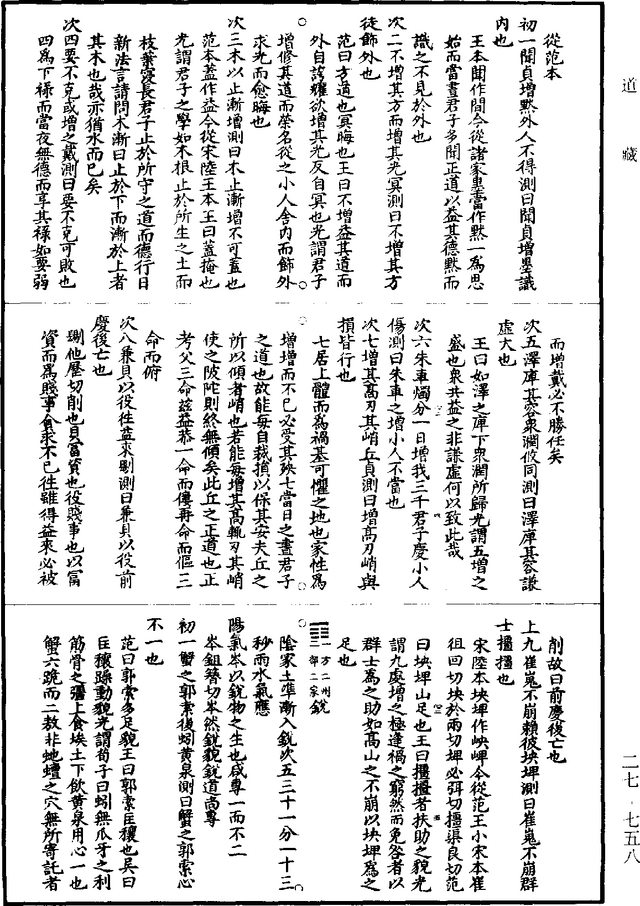 道藏
從范本
初一聞貞增黙外人不得測曰聞貞增墨識
内也
王本聞作間今從諸家墨當作黙一爲思
始而當晝君子多聞正道以益其德黙而
識之不見於外也
次二不增其方而增其光冥測曰不增其方
徒飾外也
范曰方道也冥晦也王曰不增益其道而
外自誇耀欲增其光反自冥也光謂君子
增修其道而榮名從之小人舍内而飾外
求光而愈晦也
次三木以止漸增測曰木止漸增不可蓋也
范本蓋作益今從宋陸王本王曰蓋掩也
光謂君子之學如木根止於所生之土而
枝葉寖長君子止於所守之道而德行日
新法言請問木漸曰止於下而漸於上者
其木也哉亦猶水而已矣
次四要不克或增之戴測曰要不克可敗也
四爲下禄而當夜無德而享其禄如要弱
而增戴必不勝任矣
次五澤庳其容衆潤攸同測曰澤庳其容謙
虚大也
王曰如澤之庳下衆潤所歸光謂五增之
盛也衆共益之非謙虚何以致此哉
次六朱車燭分一日增我三千君子慶小人
傷測曰朱車之增小人不當也
次七增其高刃其峭丘貞測曰增高刃峭與
損皆行也
七居上體而爲禍基可懼之地也家性爲
增增而不已必受其殃七當日之晝君子
之道也故能每自裁損以保其安夫丘之
所以傾者峭也若能每增其高輒刃其峭
使之陂陀則終無傾矣此丘之正道也正
考父三命兹益恭一命而僂再命而傴三
命而俯
次八兼貝以役往益來剔測曰兼貝以役前
慶後亡也
剔他歷切削也貝富貲也役賤事也以富
資而爲賤事貪求不已往雖得益來必被
削故曰前慶後亡也
上九崔嵬不崩賴彼坱圠測曰崔嵬不崩羣
士擾擾也
宋陸本坱圠作岟岬今從范王小宋本崔
徂回切坱於兩切圠必弭切擾渠良切范
曰坱圠山足也王曰擾擾者扶助之貌光
謂九處增之極逢禍之窮然而免咎者以
群士爲之助如高山之不崩以坱圠爲之
足也
一方二州三部二家銳
陰家土準漸入銳次五三十一分一十三
秒雨水氣應
陽氣岑以銳物之生也咸專一而不二
岑鉏簪切岑然銳貌銳道尚專
初一蟹之郭索後蚓黄泉測曰蟹之郭索心
不一也
范曰郭索多足貌王曰郭索匡穰也吴曰
匡穰躁動貌光謂荀子曰蚓無爪牙之利
筋骨之彊上食埃土下飲黄泉用心一也
蟹六跪而二敖非蛇蟺之穴無所寄託者
二七·七五八